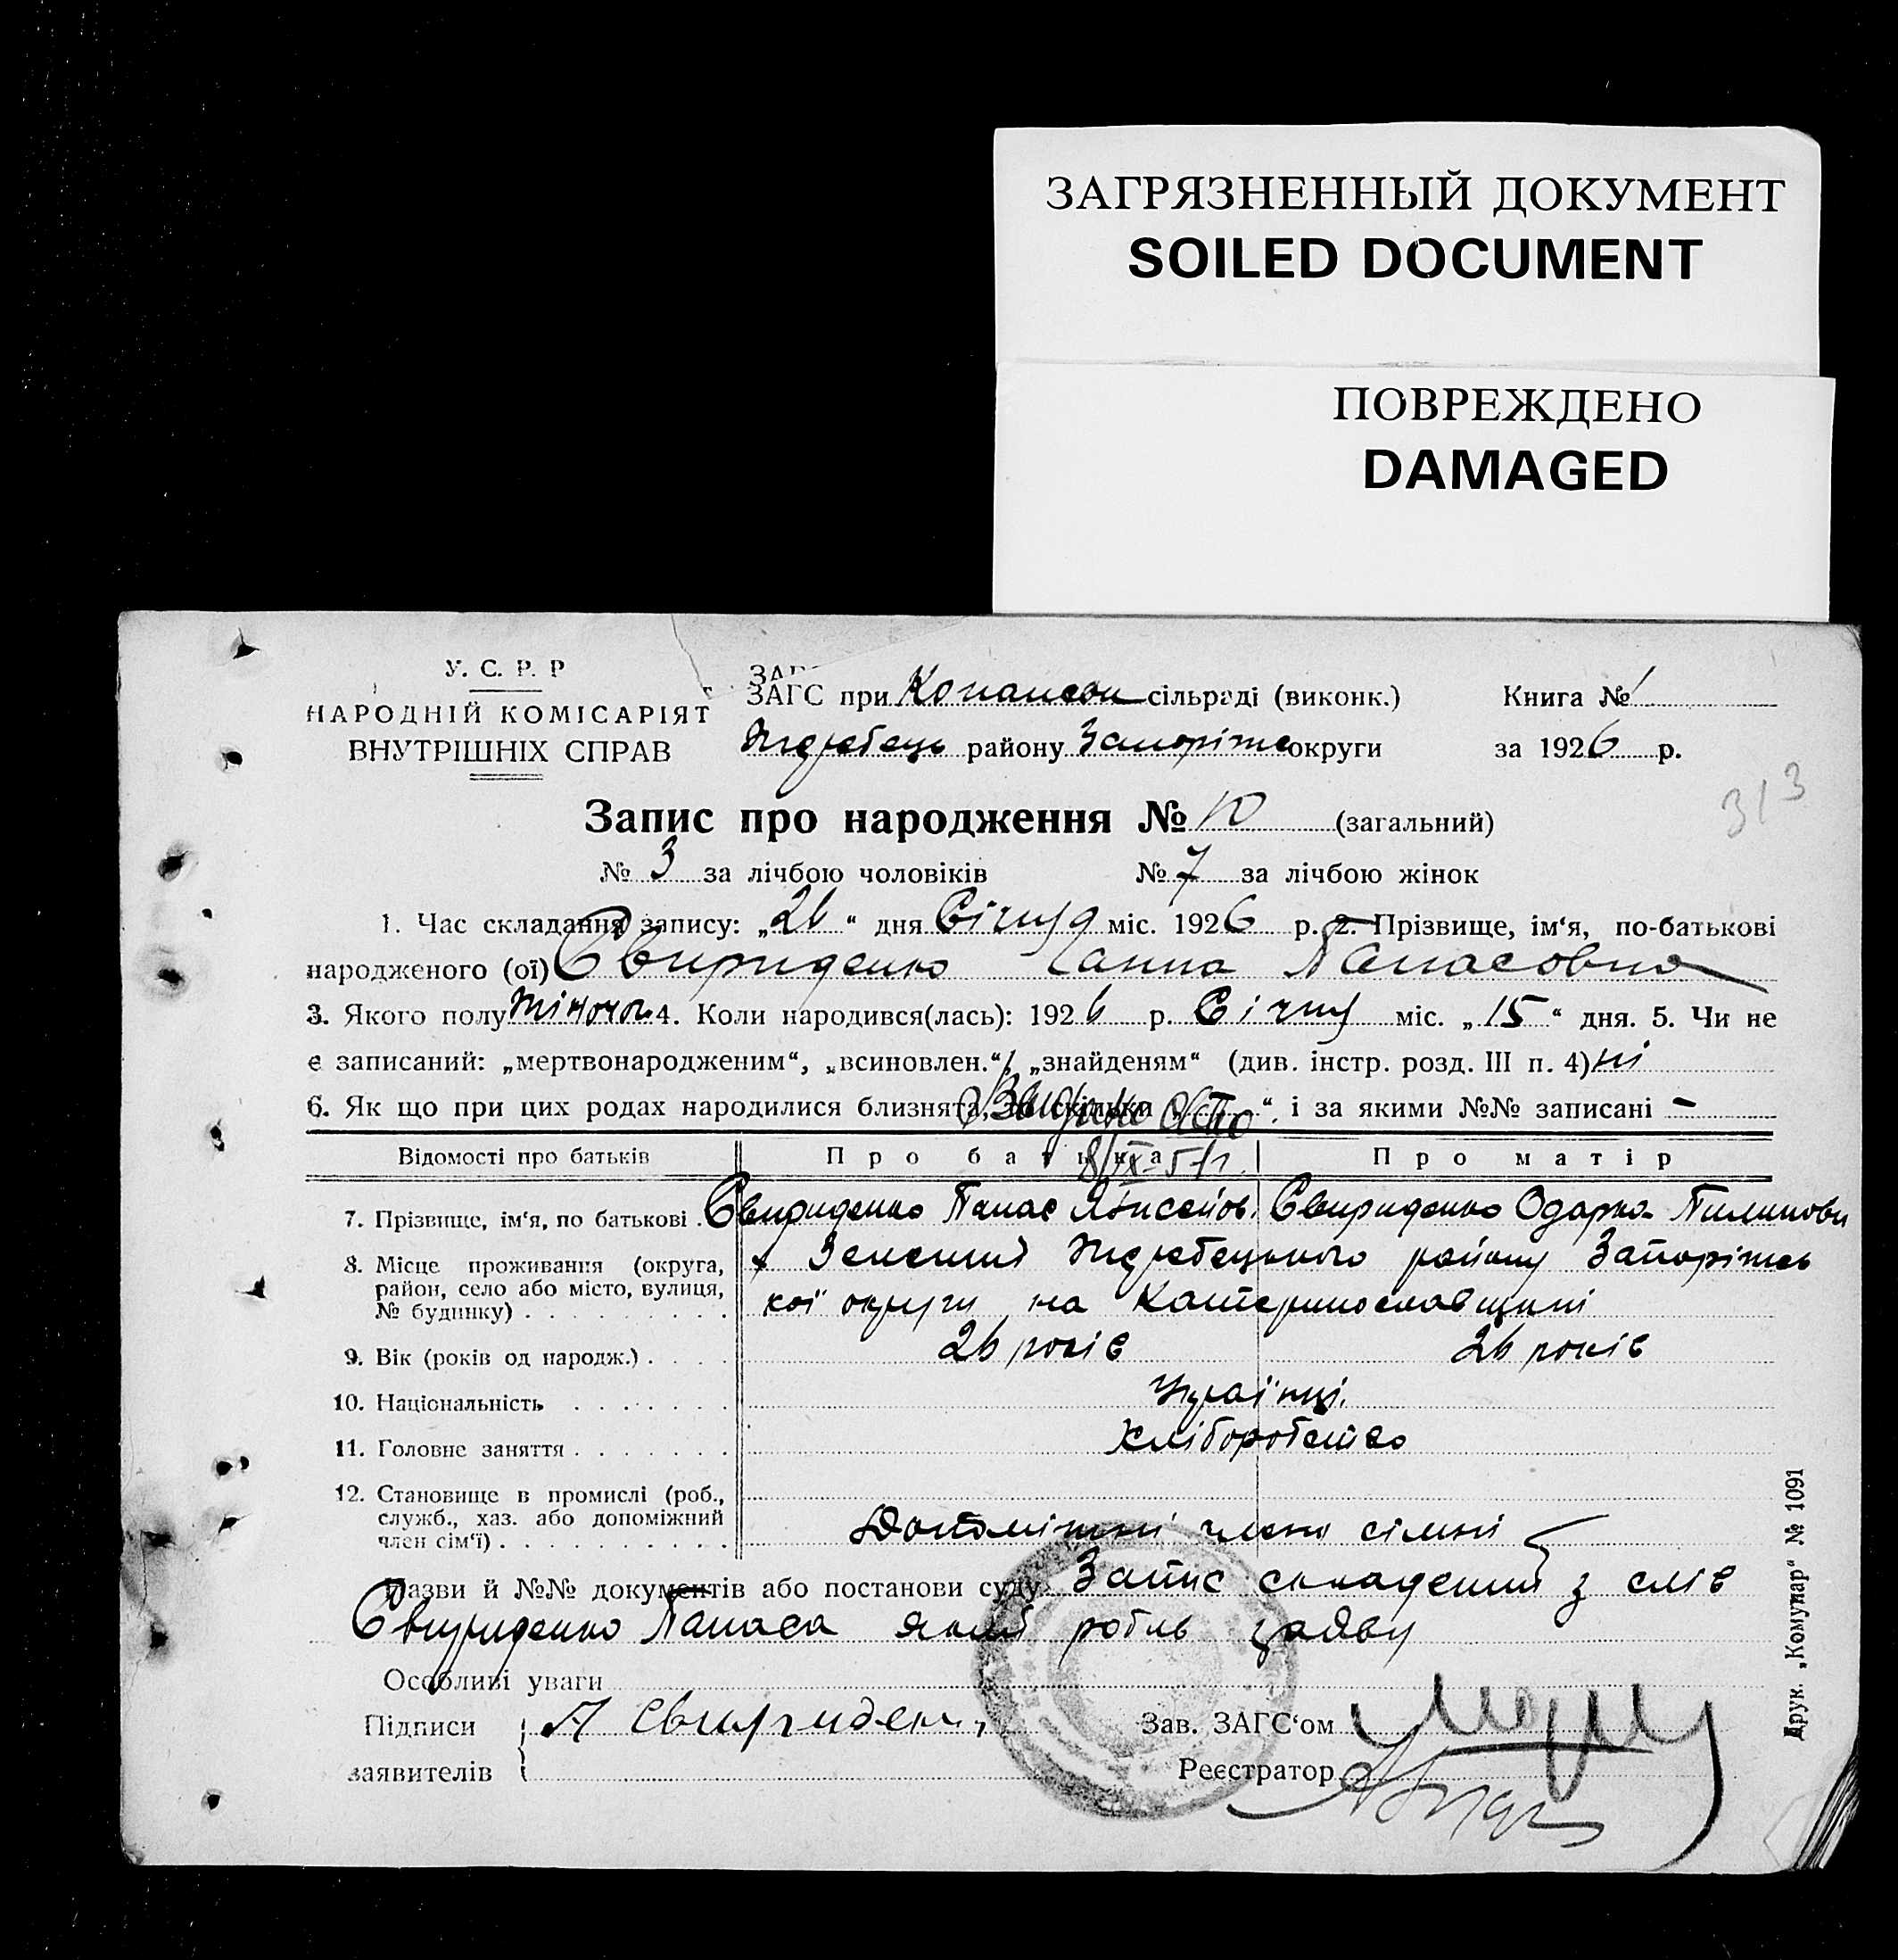 ЗАГРЯЗНЕННЫЙ ДОКУМЕНТ
SOILED DOCUMENT
ПОВРЕЖДЕНО
DAMAGED
У. С. Р. Р
НАРОДНІЙ КОМІСАРІЯТ
ВНУТРІШНІХ СПРАВ
ЗАГС при Копансон сільраді (виконк.) Книга № 1
району Запоріж округи за 1926 р.
313
Запис про народження № 10 (загальний)
№ 3 за лічбою чоловіків № 7 за лічбою жінок
1. Час складання запису: „26“ дня Січня міс. 1926 р. 2. Прізвище, ім‘я, по-батькові
народженого (ої) Свириденко Ганна Панасовна
3. Якого полу жіночог 4. Коли народився(лась): 1926 р. Січня міс. „15“ дня. 5. Чи не
є записаний: „мертвонародженим“, „всиновлен.“, „знайденям“ (див. інстр. розд. III п. 4) ні
6. Як що при цих родах народилися близнята, то скільки “ і за якими №№ записані -
Відомості про батьків Про батька Про матір
8/IX-51г.
7. Прізвище, ім‘я, по батькові Свириденко Панас Свириденко Одарка Пилипови
8. Місце проживання (округа, район, село або місто, вулиця, № будинку) х Зелений Жеребецького району Запоріжсь
кої округи на Катеринославщині
9. Вік (років од народж.) 26 років 26 років
10. Національність Українці.
11. Головне заняття Хліборобство
12. Становище в промислі (роб., служб., хаз. або допоміжний член сім‘ї) Допоміжні члени сімні
Назви й №№ документів або постанови суду Запис складений з слів
Свириденко Панаса який робив заяву
Особливі уваги
Підписи А Свириден Зав. ЗАГС‘ом
заявителів Реєстратор
Друк. „Комунар“ № 1091